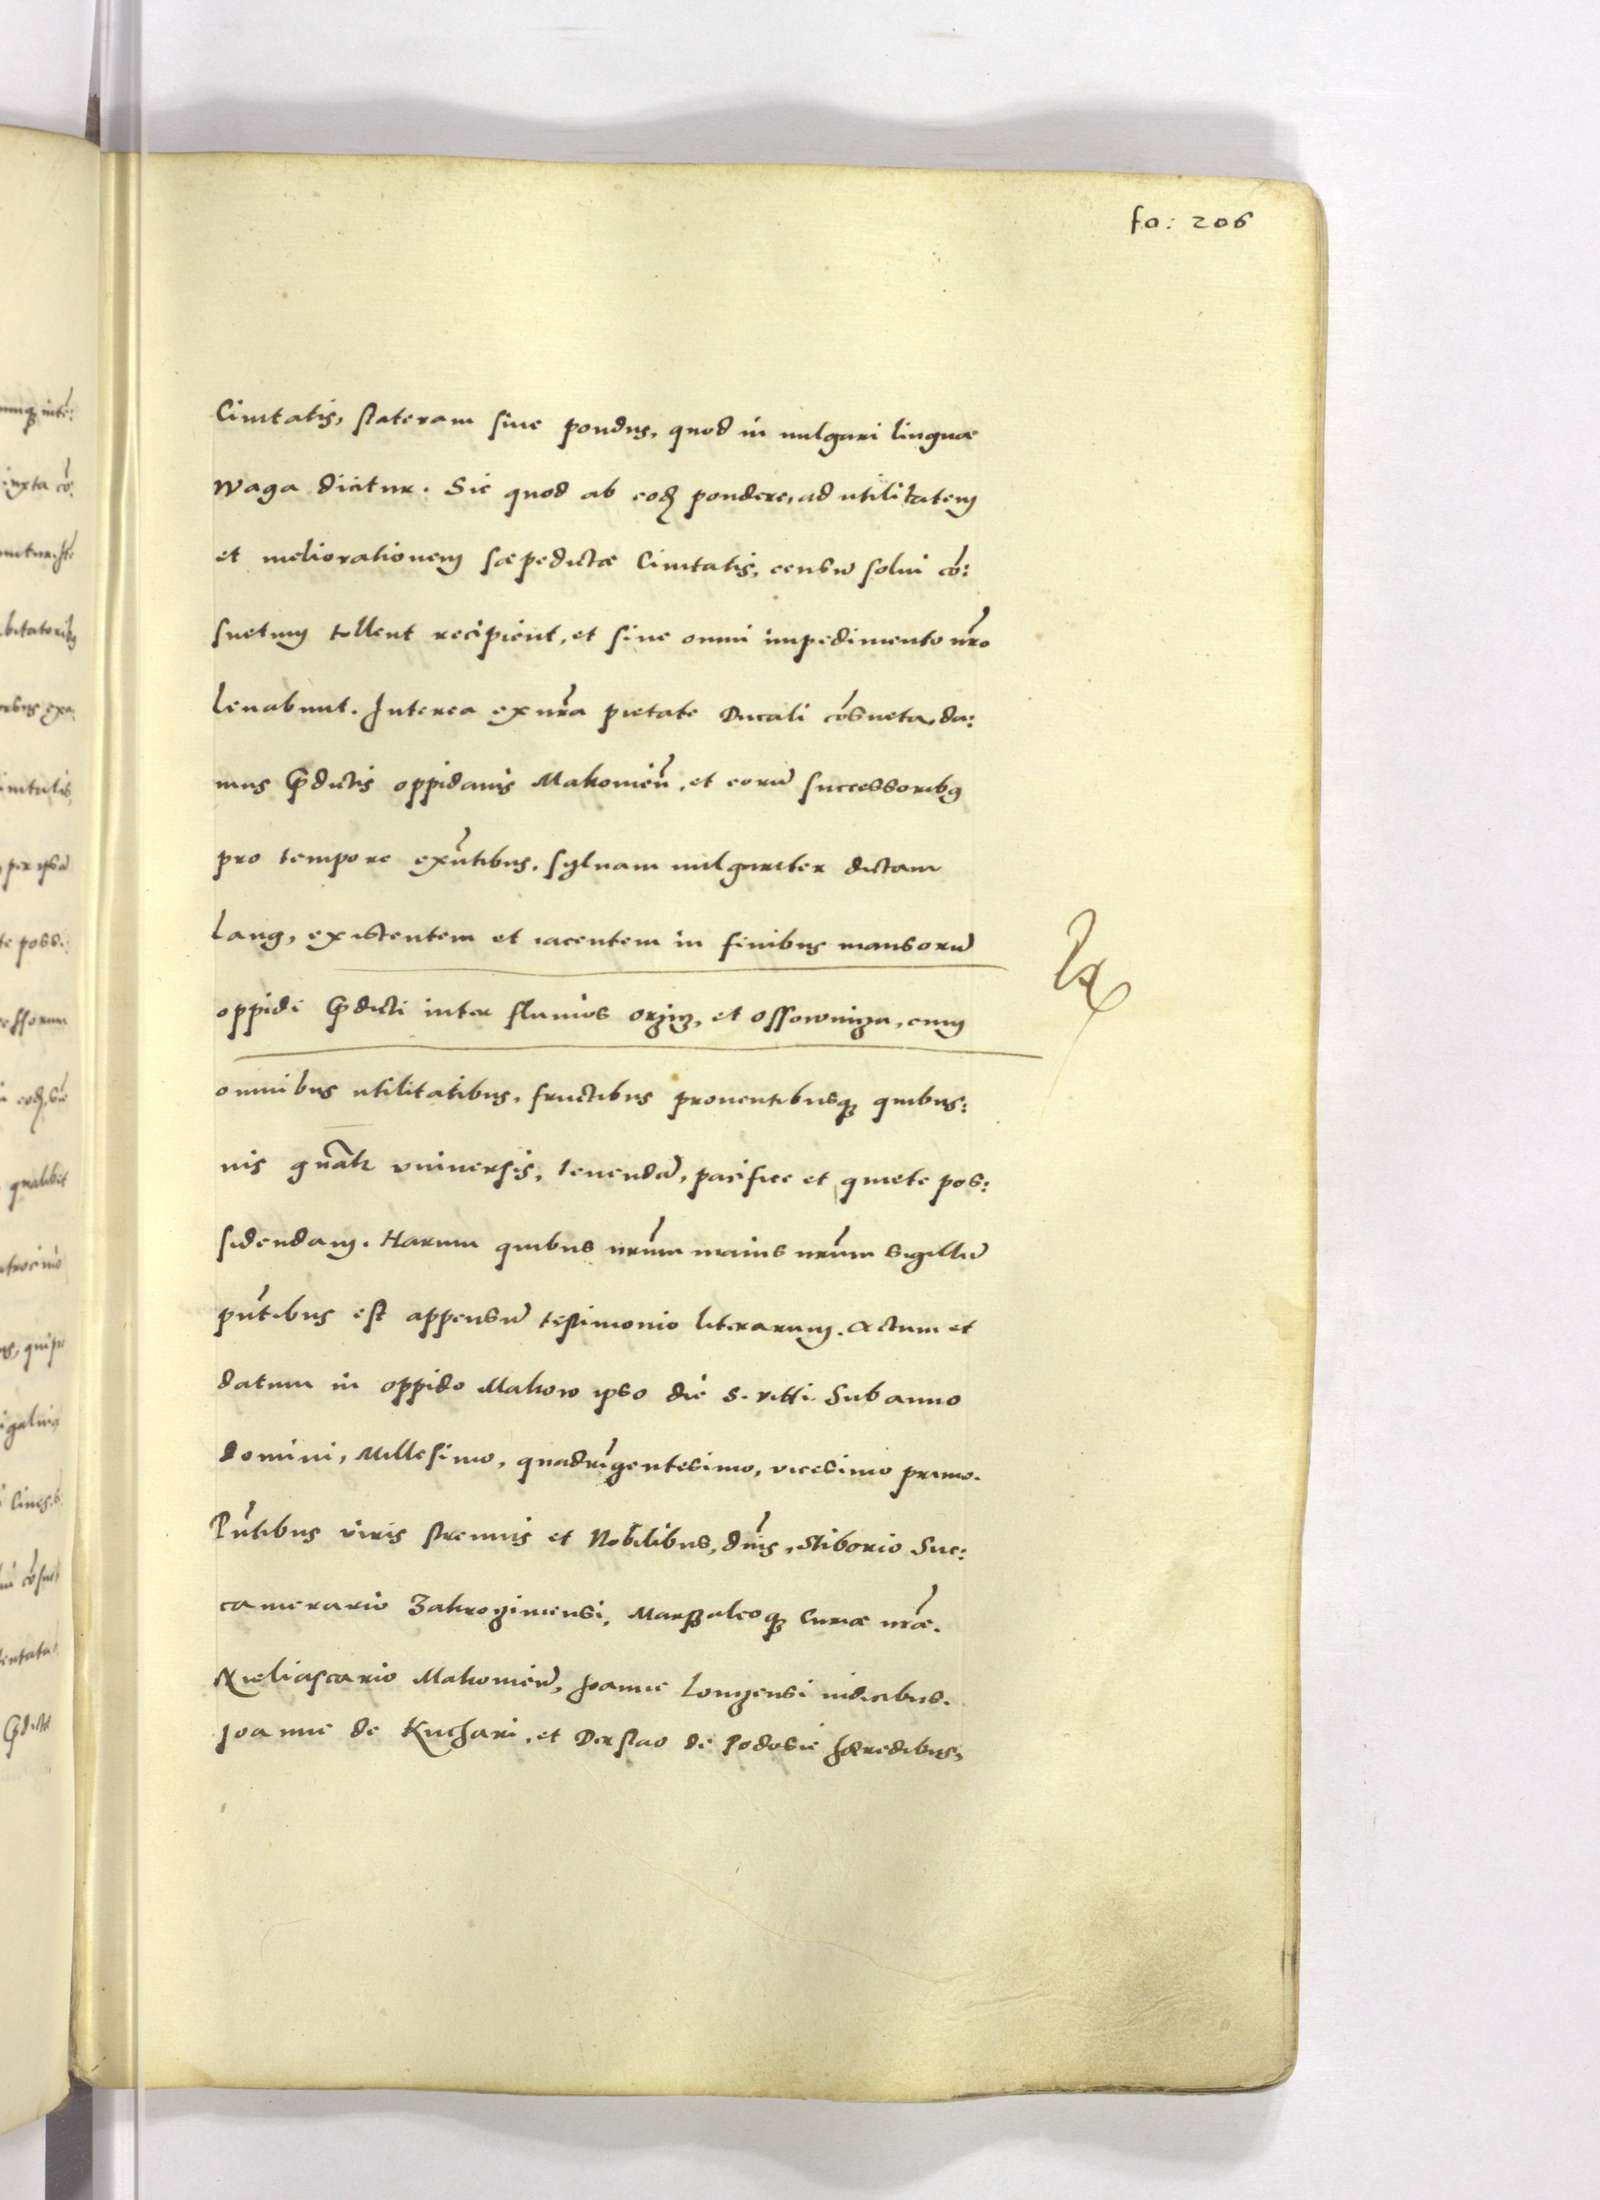 fo: 206
Ciuitatis, stateram siue pondus, quod in uulgari linguæ
waga dicitur. Sic quod ab eodẽ pondere, ad utilitatem
et meliorationem sæpedictæ Ciuitatis, censũ solui cõ:
suetum tollent recipient, et sine omni impedimento nr̃o
leuabunt. Interea ex nr̃a pietate Ducali cõsueta, da:
mus p̃dictis oppidanis Makouieñ, et eorũ successoribꝫ
pro tempore exñtibus, syluam uulgariter dictam
Lang, existentem et iacentem in finibus mansorũ
oppidi p̃dicti inter fluuios orzicz, et ossownicza, cum
omnibus utilitatibus, fructibus prouentibusqꝫ quibus:
uis gñalr̃ vniuersis, tenendã, pacifice et quiete pos:
sidendam. Harum quibus nr̃um maius nr̃um sigillũ
pñtibus est appensũ testimonio literarum. Actum et
datum in oppido Makow ipso die S. Vitti Sub anno
domini, Millesimo, quadringentesimo, vicesimo primo.
Pñtibus viris strenuis et Nobilibus, dñis, Stiborio Suc:
camerario Zakroczimensi, Marszalcoqꝫ Curiæ nr̃æ.
Makouieñ, Joanne Lomzensi iudicibus.
Joanne de Kuchari, et Derslao de Podosie hæredibus,